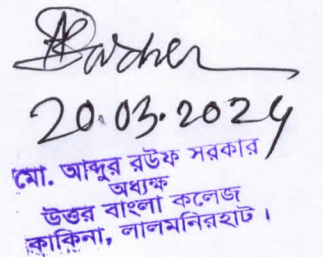 20.03.2024
মো. আব্দুর রউফ সরকার
অধ্যক্ষ
উত্তর বাংলা কলেজ
কাকিনা, লালমনিরহাট।